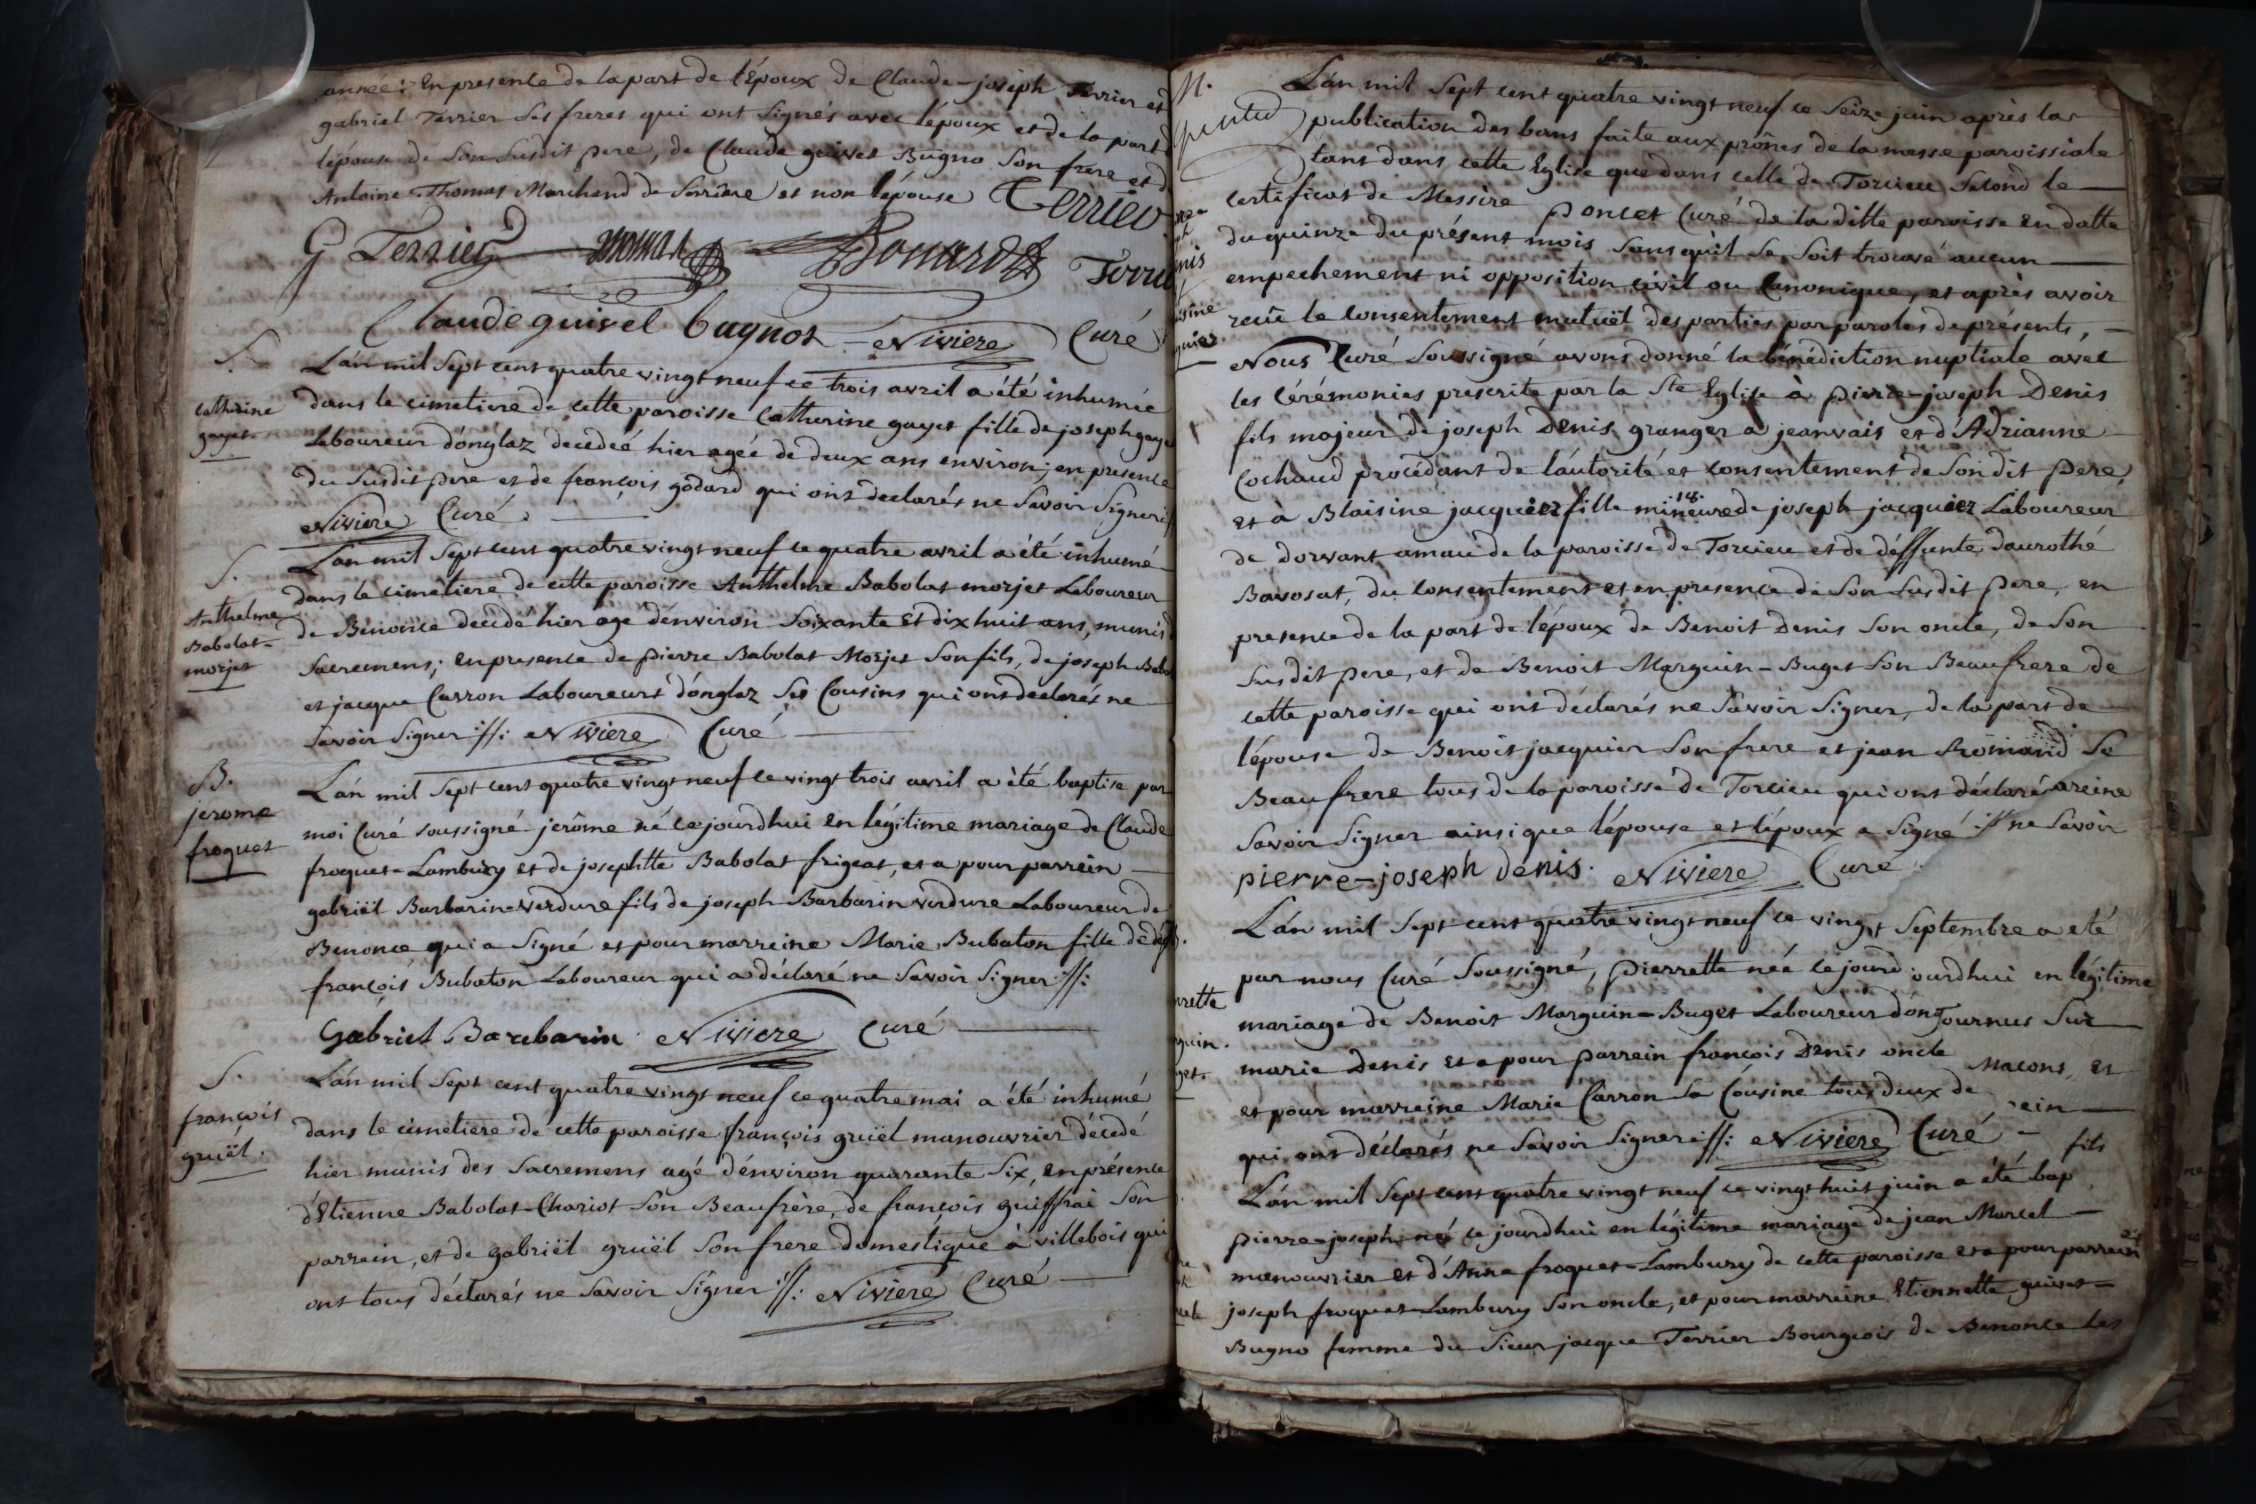 année; En presence de la part de l'Époux de Claude-joseph Terrier et
gabriel Terrier ses freres qui ont signés avec l'époux et de la part
l'épouse de son susdit pere, de Claude guivet Bugno son frere et d
Antoine Thomas Marchand de Serriere et non l'épouse Terrier
G Terrier Thomas Bonard Terrie
Claude guivel bugnoz Niviere Curé
S.
catherine
gayet
L'an mil sept cent quatre vingt neuf ce trois avril a été inhumée
dans le cimetiere de cette paroisse Catherine gayet fille de joseph gaye
Laboureur d'onglaz decedeé hier ageé de deux ans environ; en presence
du susdit pere et de françois godard qui ont declarés ne savoir signer
Niviere Curé.
S.
Anthelme
Babolat-
morjet
L'an mil sept cent quatre vingt neuf ce quatre avril a été inhumé
dans le cimètiere de cette paroisse Anthelme Babolat morjet Laboureur
de Benonce decedé hier agé d'environ soixante et dix huit ans, munis d
sacremens; en presence de pierre Babolat Morjet son fils, de joseph Babo
et jacque Carron Laboureurs d'onglaz ses Cousins qui ont declarés ne
savoir signer //: Niviere Curé
B.
jerome
froquet
L'an mil sept cent quatre vingt neuf ce vingt trois avril a été baptise par
moi Curé soussigné jerôme né ce jourdhui en légitime mariage de Claude
froquet-Lambury et de josephtte Babolat frigeat, et a pour parrein
gabriël Barbarin-verdure fils de joseph Barbarin verdure Laboureur de
Benonce qui a signé et pour marreine Marie Bubaton fille de
françois Bubaton Laboureur qui a déclaré ne savoir signer //:
Gabriel Barebarin Niviere Curé
S.
françois
gruël.
L'an mil sept cent quatre vingt neuf ce quatre mai a été inhumé
dans le cimetiere de cette paroisse françois gruël manouvrier décedé
hier munis des sacremens agé d'environ quarante six, en présence
d'Etienne Babolat-Chariot son Beaufrère, de françois guiffrai son
parrein, et de gabriël gruël son frere domestique à villebois qui
ont tous déclarés ne savoir signer //: Niviere Curé
M.
L'an mil sept cent quatre vingt neuf ce seize juin après la
publication des bans faite aux prônes de la messe paroissiale
tant dans cette Eglise que dans celle de Torcieu second le
certificat de Messire poncet Curé de la ditte paroisse en datte
du quinze du présent mois sans qu'il se soit trouvé aucun
empechement ni opposition civil ou Canonique, et après avoir
recû le consentement mutuël des parties par paroles de présents,
Nous Curé soussigné avons donné la bénédiction nuptiale avec
les Cérémonies prescrite par la Ste Eglise à pierre-joseph Denis
fils majeur de joseph Denis granger a jeanvais et d'Adrianne
Cochaud procédant de l'autorité et consentement de son dit pere,
et à Blaisine jacquier fille mineure de joseph jacquier Laboureur
de dorvant amau de la paroisse de Torcieu et de déffunte daurothé
Bavosat, du consentement et en presence de son susdit pere, en
presence de la part de l'époux de Benoit Denis son oncle, de son
susdit pere, et de Benoit Marguin-Buget son Beaufrere de
cette paroisse qui ont déclarés ne savoir signer, de la part de
l'épouse de Benoit jacquier son frere et jean Romand so
Beaufrere tous de la paroisse de Torcieu qui ont déclaré areine
savoir signer ainsi que l'épouse et l'époux a signé // ne savoir
pierre-joseph denis. Niviere Curé
L'an mil sept cent quatre vingt neuf ce vingt septembre a eté
par nous Curé soussigné, pierrette née ce jourd ourdhui en légitime
mariage de Benoit Marguin-Buget Laboureur d'ong Tournus sur
marie Denis et a pour parrein françois Denis oncle Macons, et
et pour marreine Marie Carron sa Cousine tous deux de rein
qui ont déclarés ne savoir signer //: Niviere Curé fils
L'an mil sept cent quatre vingt neuf ce vingt huit juin a été bap
pierre-joseph né ce jourdhui en légitime mariage de jean Marcel
manouvrier et d'Anne froquet-Lambury de cette paroisse et a pour parrein
joseph froquet-Lambury son oncle, et pour marreine Etiennette guivet-
Bugno femme du sieur jacque Terrier Bourgeois de Benonce les